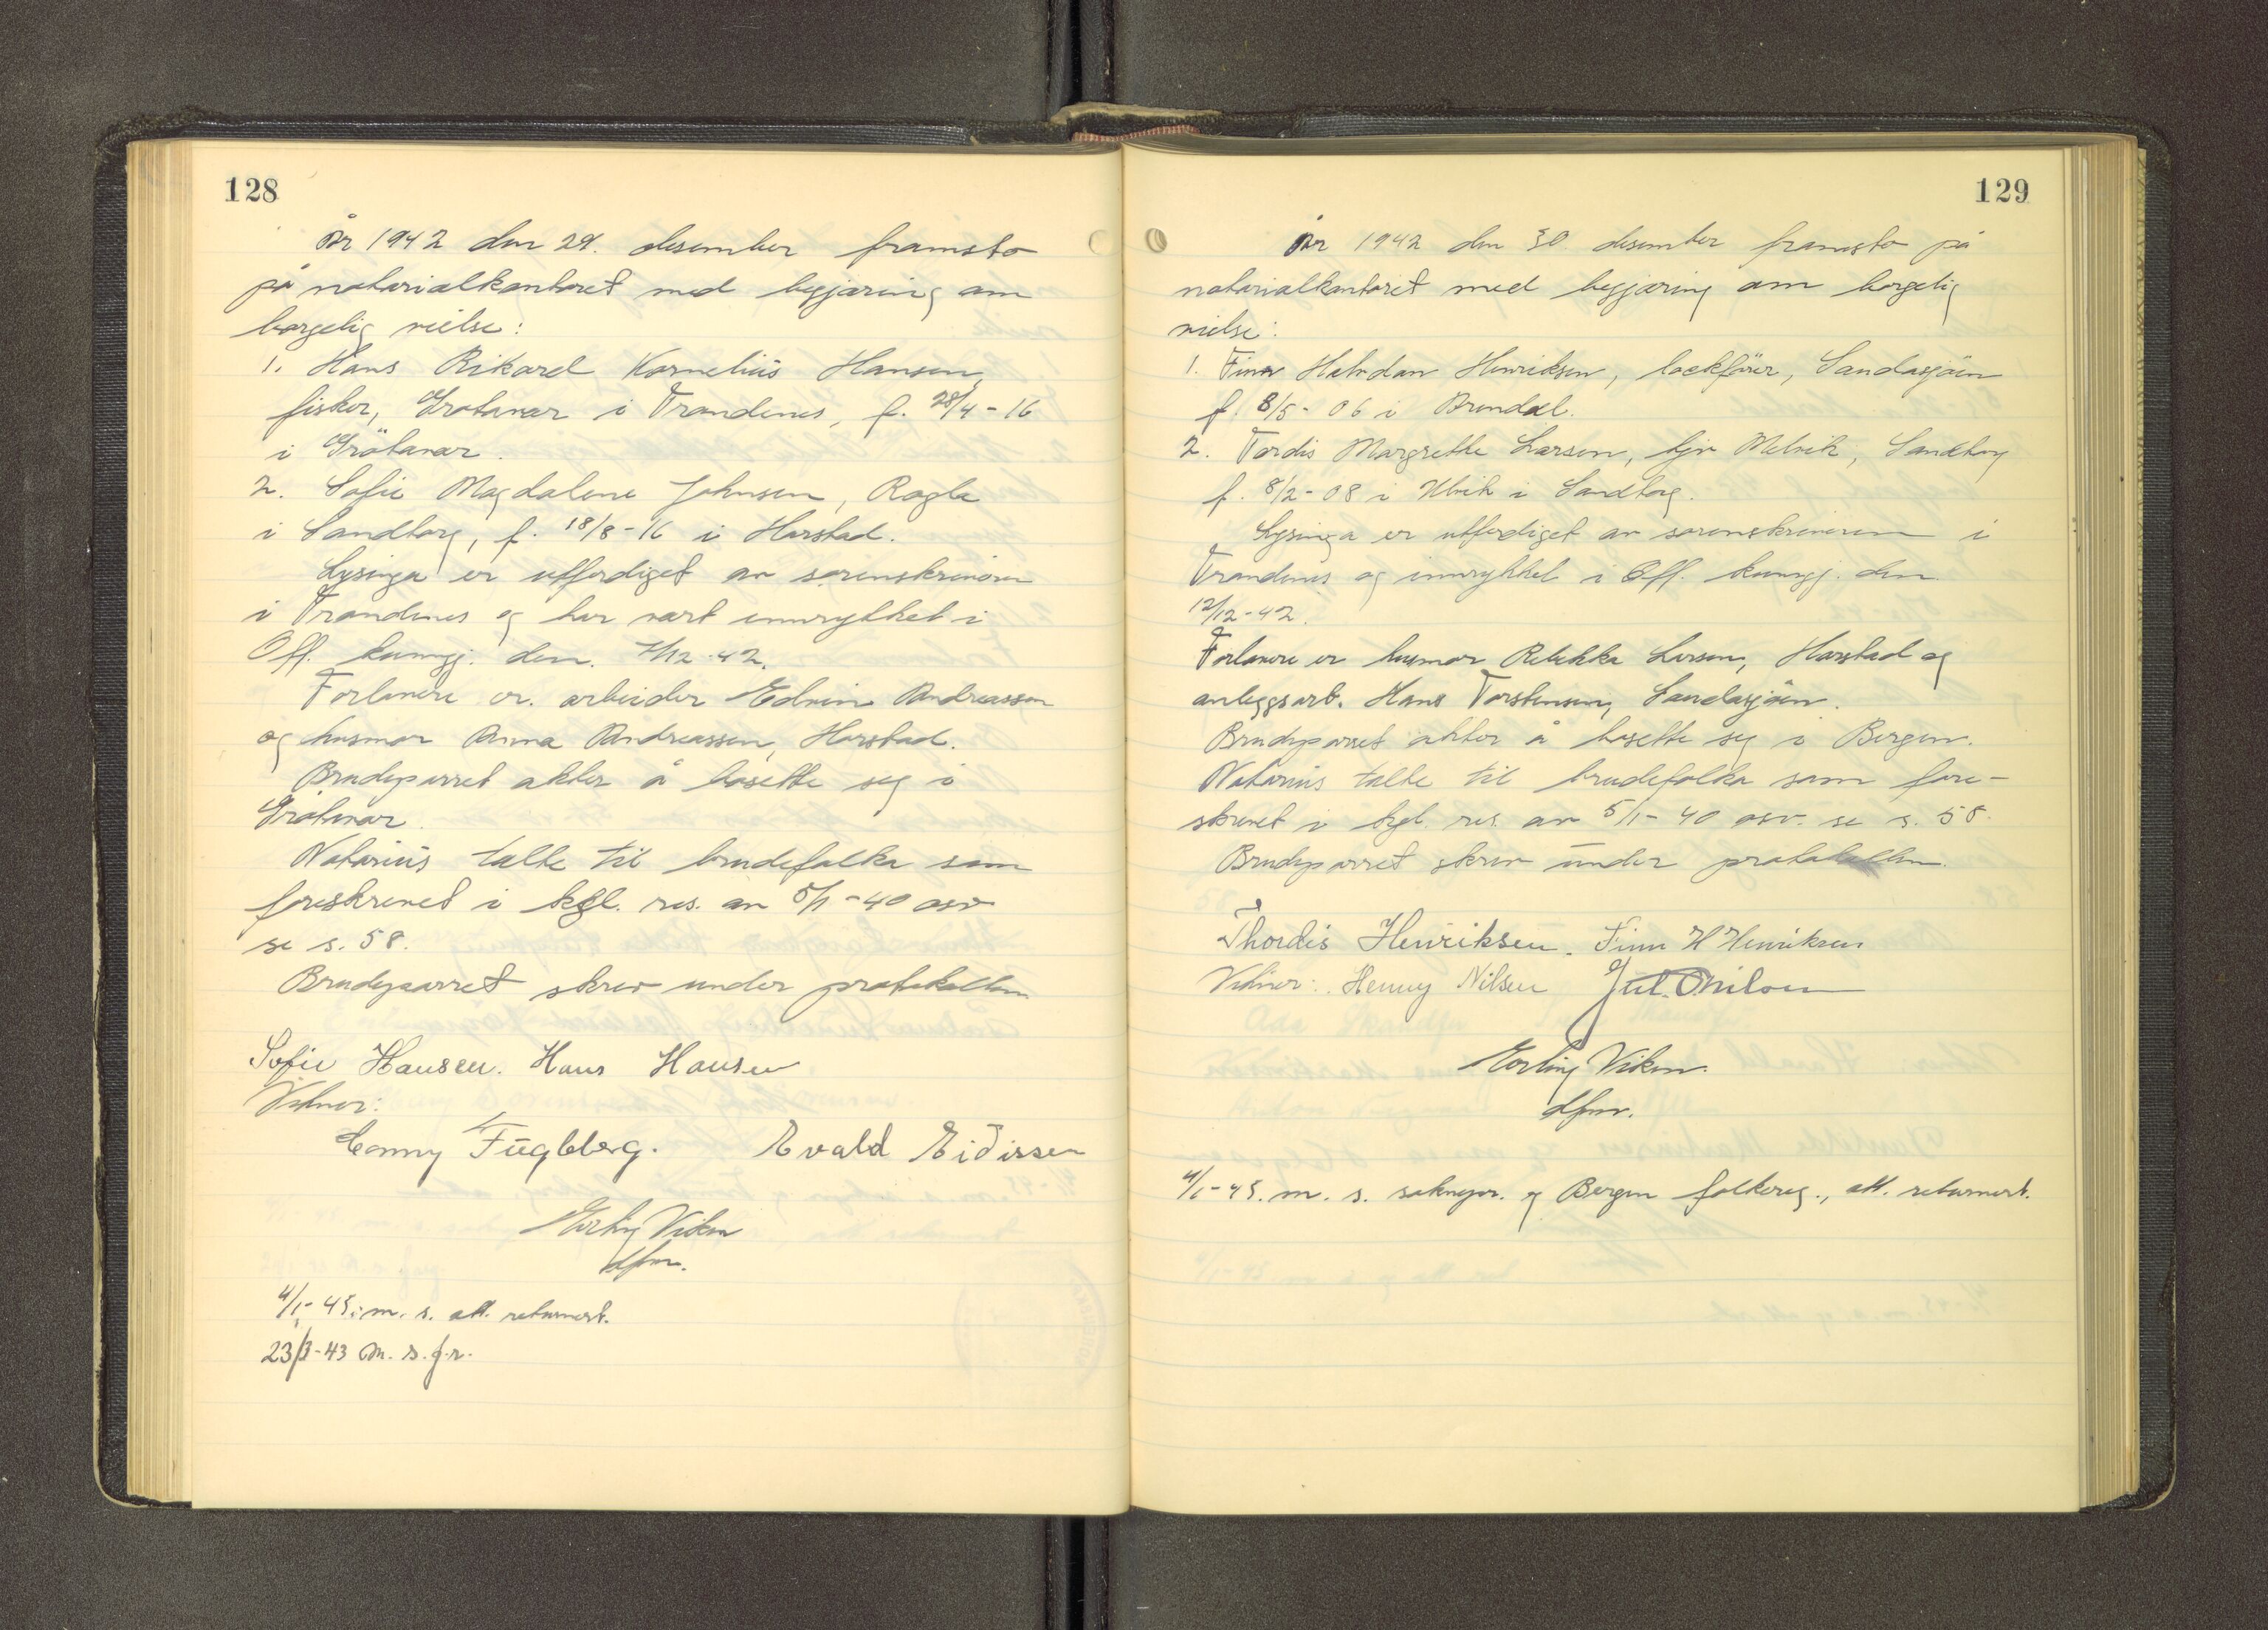 128
År 1942 den 29. desember framsto
på notarialkontoret med begjæring om
borgelig vielse:
1. Hans Rikard Kornelius Hansen,
fisker, Grötavær i Trondenes, f. 28/4-16
i Grötavær.
2. Sofie Magdalene Johnsen, Rogla
i Sandtorg, f. 18/8-16 i Harstad.
Lysinga er utferdiget av sorenskriveren
i Trondenes og har vært innrykket i
Off. kunngj. den. 7/12-42.
Forlovere er. arbeider Edvin Andreassen
og husmor Anna Andreassen, Harstad.
Brudeparret akter å bosette seg i
Grötavær.
Notarius talte til brudefolka som
foreskrevet i kgl. res. av 5/1-40 osv
se s. 58.
Brudeparret skrev under protokollen
Sofie Hansen. Hans Hansen
Vidner:
Conny Fugleberg. Evald Eidissen
Erling Viken
dfm.
4/1-43. m. s. att. returnert.
23/3-43 m. s. f. r.
129
År 1942 den 30 desember framsto på
notarialkontoret med begjæring om borgelig
vielse:
1. Finn Halvdan Henriksen, lastefører, Sandasjöen
f. 8/5-06 i
2. Tordis Margrethe Larsen, Melvik, Sandtorg
f. 8/2-08 i i Sandtorg.
Lysinga er utferdiget av sorenskriveren i
Trondenes og innrykket i Off. kunngj. den
12/12-42.
Forlovere er husmor Rebekka Larsen, Harstad og
anleggsarb. Hans Torstensen, Sandasjöen.
Brudeparret akter å bosette seg i Bergen.
Notarius talte til brudefolka som fore-
skrevet i kgl. res. av 5/1-40 osv. se s. 58.
Brudeparret skrev under protokollen.
Thordis Henriksen. Finn H Henriksen
Vidner: Henny Nilsen Jul. Nilsen
Erling Viken.
dfm.
4/1-43. m. s. sokнepr. og Bergen folkereg., att. returnert.